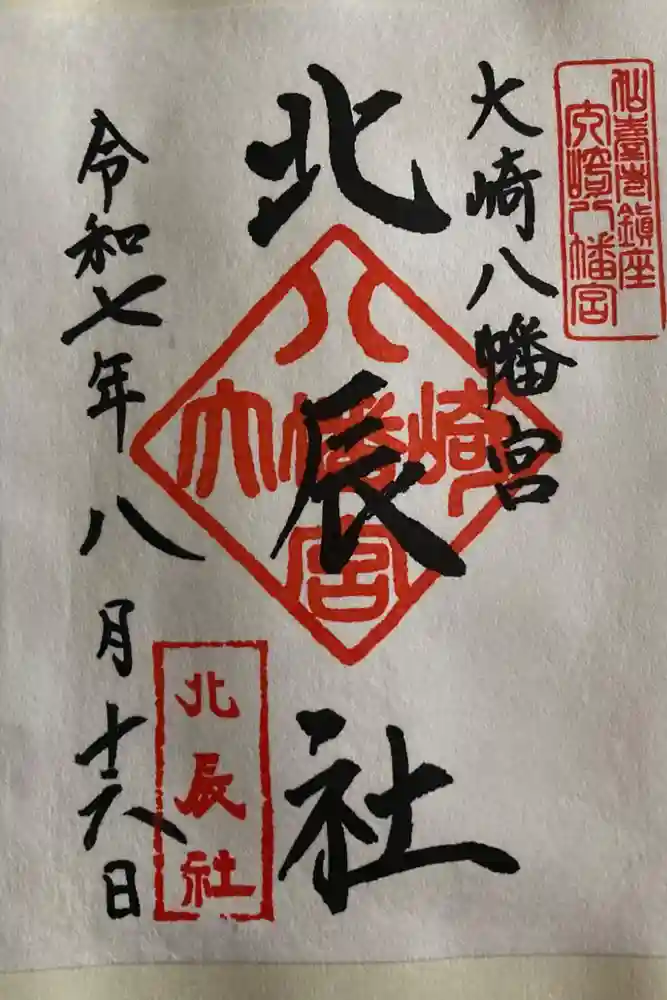 仙臺市鎮座
大崎八幡宮
大崎八幡宮
北辰社
大崎八幡宮
北辰社
令和七年八月十六日